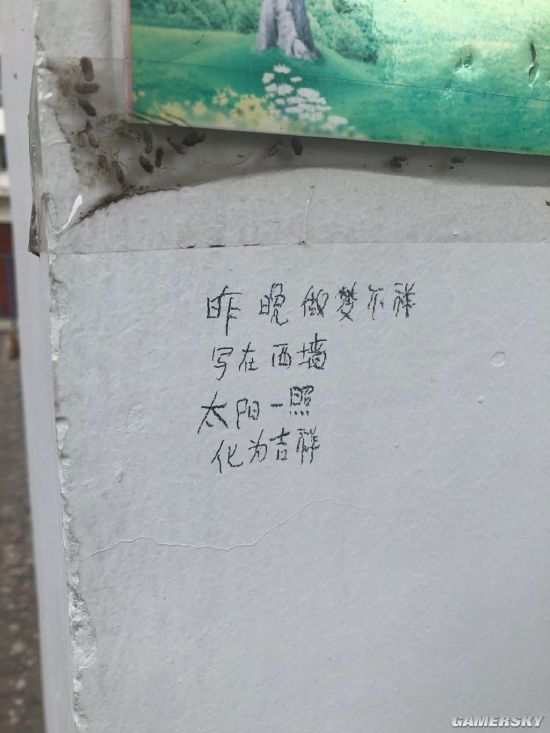 昨晚做梦不祥
写在西墙
太阳一照
化为吉祥
GAMERSKY